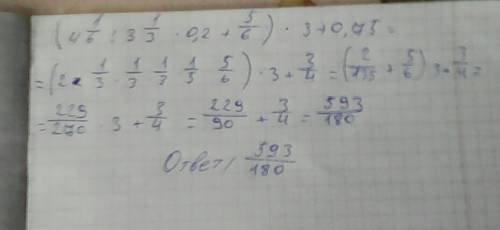 (4 1/6 : 3 1/3 · 0,2 + 5/6) · 3 + 0,75 =
= (2 · 1/3 · 1/3 1/3 1/5 5/6) · 3 + 3/4 = (2/135 + 5/6) 3 + 3/4 =
= 229/270 · 3 + 3/4 = 229/90 + 3/4 = 593/180
Ответ: 593/180